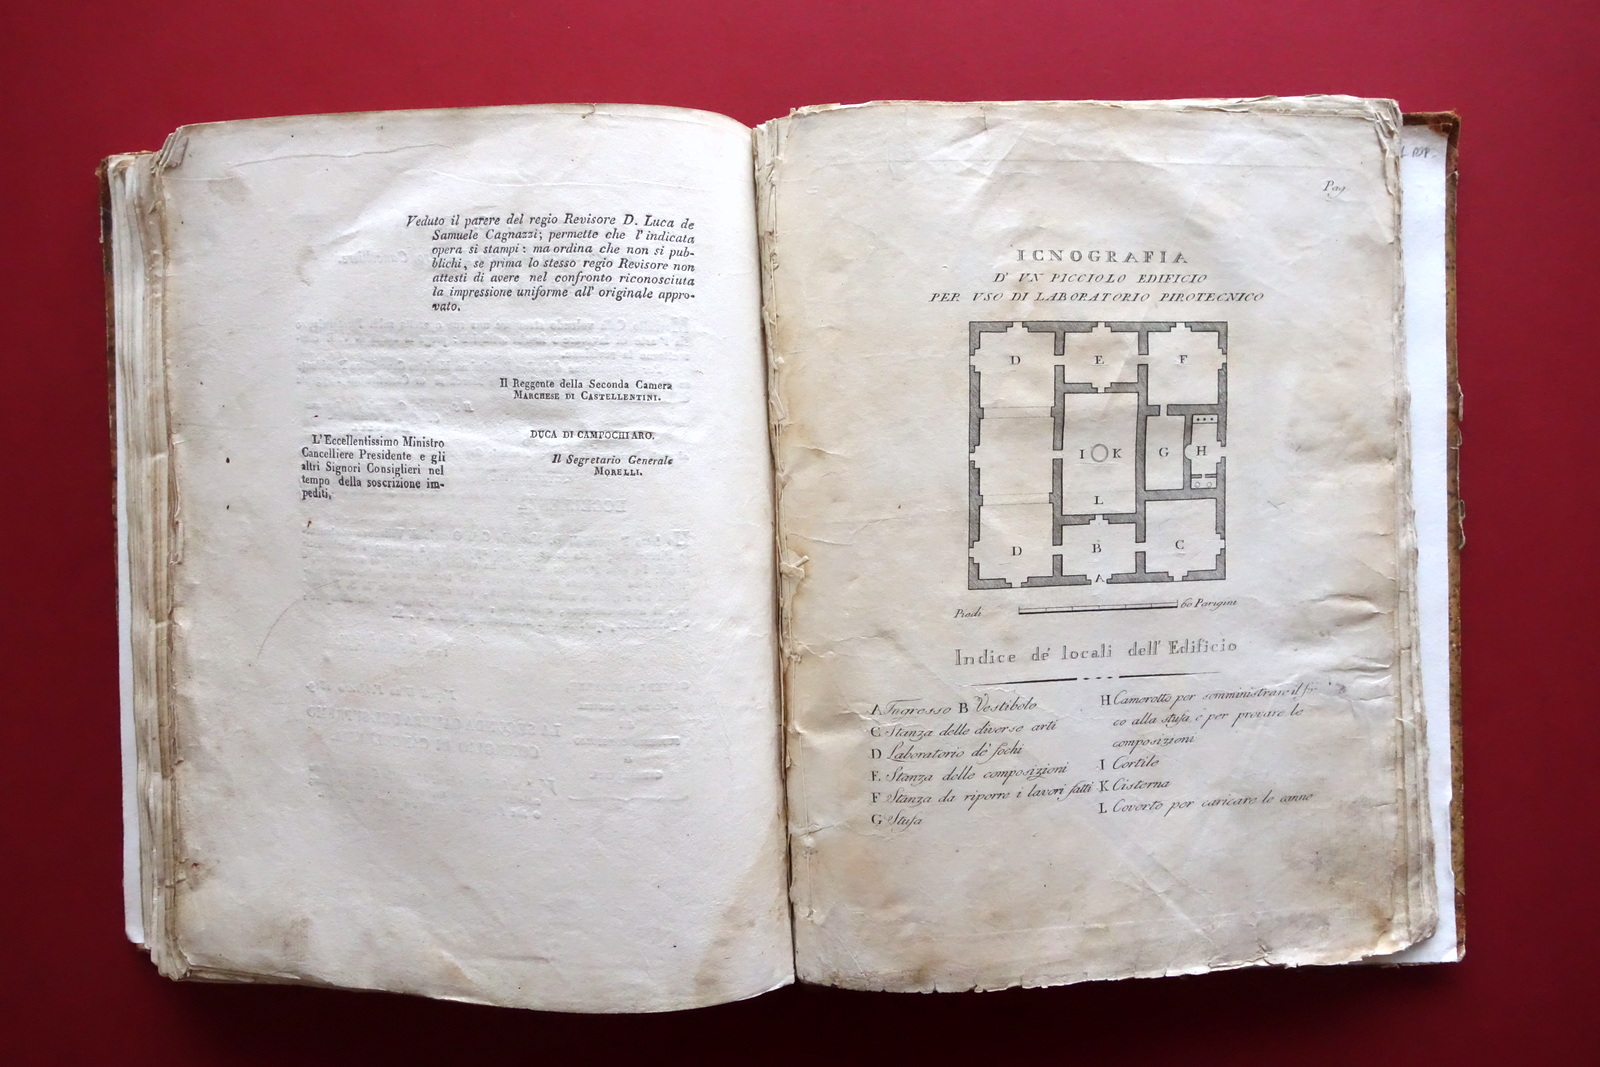 Veduto il parere del regio Revisore D. Luca de
Samuele Cagnazzi; permette che l'indicata
opera si stampi: ma ordina che non si pub-
blichi, se prima lo stesso regio Revisore non
attesti di avere nel confronto riconosciuta
la impressione uniforme all' originale appro-
vato.
Il Reggente della Seconda Camera
MARCHESE DI CASTELLENTINI.
DUCA DI CAMPOCHIARO.
L'Eccellentissimo Ministro
Cancelliere Presidente e gli
altri Signori Consiglieri nel
tempo della soscrizione im-
pediti,
Il Segretario Generale
MORELLI.
Pag
ICNOGRAFIA
D' UN PICCIOLO EDIFICIO
PER USO DI LABORATORIO PIROTECNICO
D E F
I K G H
L
D B C
A
Piedi 60 Parigini
Indice de' locali dell' Edificio
A Ingresso B Vestibolo
C Stanza delle diverse arti
D Laboratorio de' fochi
E Stanza delle composizioni
F Stanza da riporre i lavori fatti
G Stufa
H Camerotto per somministrare il fo
co alla stufa, e per provare le
composizioni
I Cortile
K Cisterna
L Coverto per caricare le canne